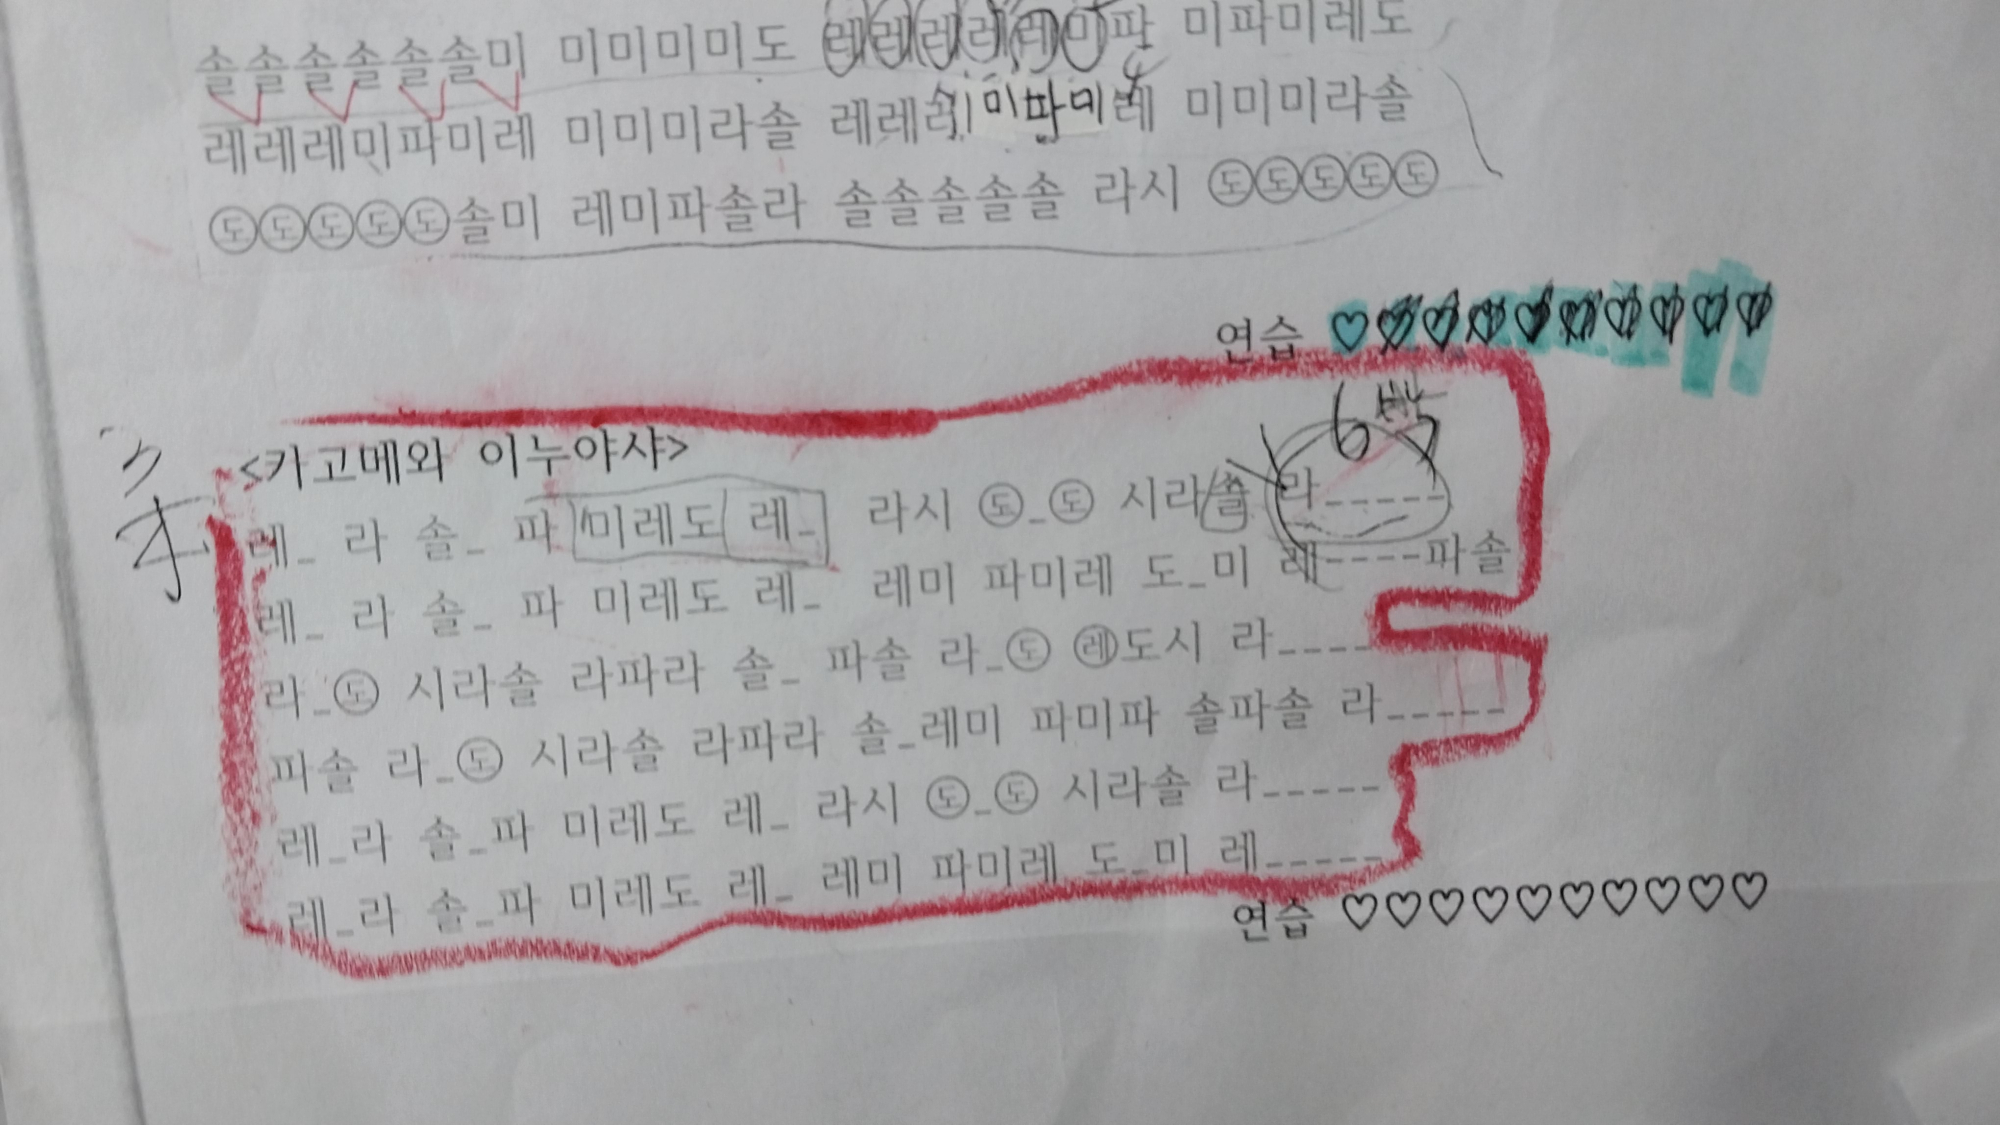 솔솔솔솔솔솔미 미미미미도 레레레레레미파 미파미레도
레레레미파미레 미미미라솔 레레레미파미레 미미미라솔
㉦㉦㉦㉦㉦솔미 레미파솔라 솔솔솔솔솔 라시 ㉦㉦㉦㉦㉦
연습 ♡♡♡♡♡♡♡♡♡♡
6박
<카고메와 이누야샤>
레_ 라 솔_ 파 미레도 레_ 라시 ㉦_㉦ 시라솔 라_____
레_ 라 솔_ 파 미레도 레_ 레미 파미레 도_미 레----파솔
라_㉦ 시라솔 라파라 솔_ 파솔 라_㉦ ㉹도시 라____
파솔 라_㉦ 시라솔 라파라 솔_레미 파미파 솔파솔 라_____
레_라 솔_파 미레도 레_ 라시 ㉦_㉦ 시라솔 라_____
레_라 솔_파 미레도 레_ 레미 파미레 도_미 레_____
연습 ♡♡♡♡♡♡♡♡♡♡